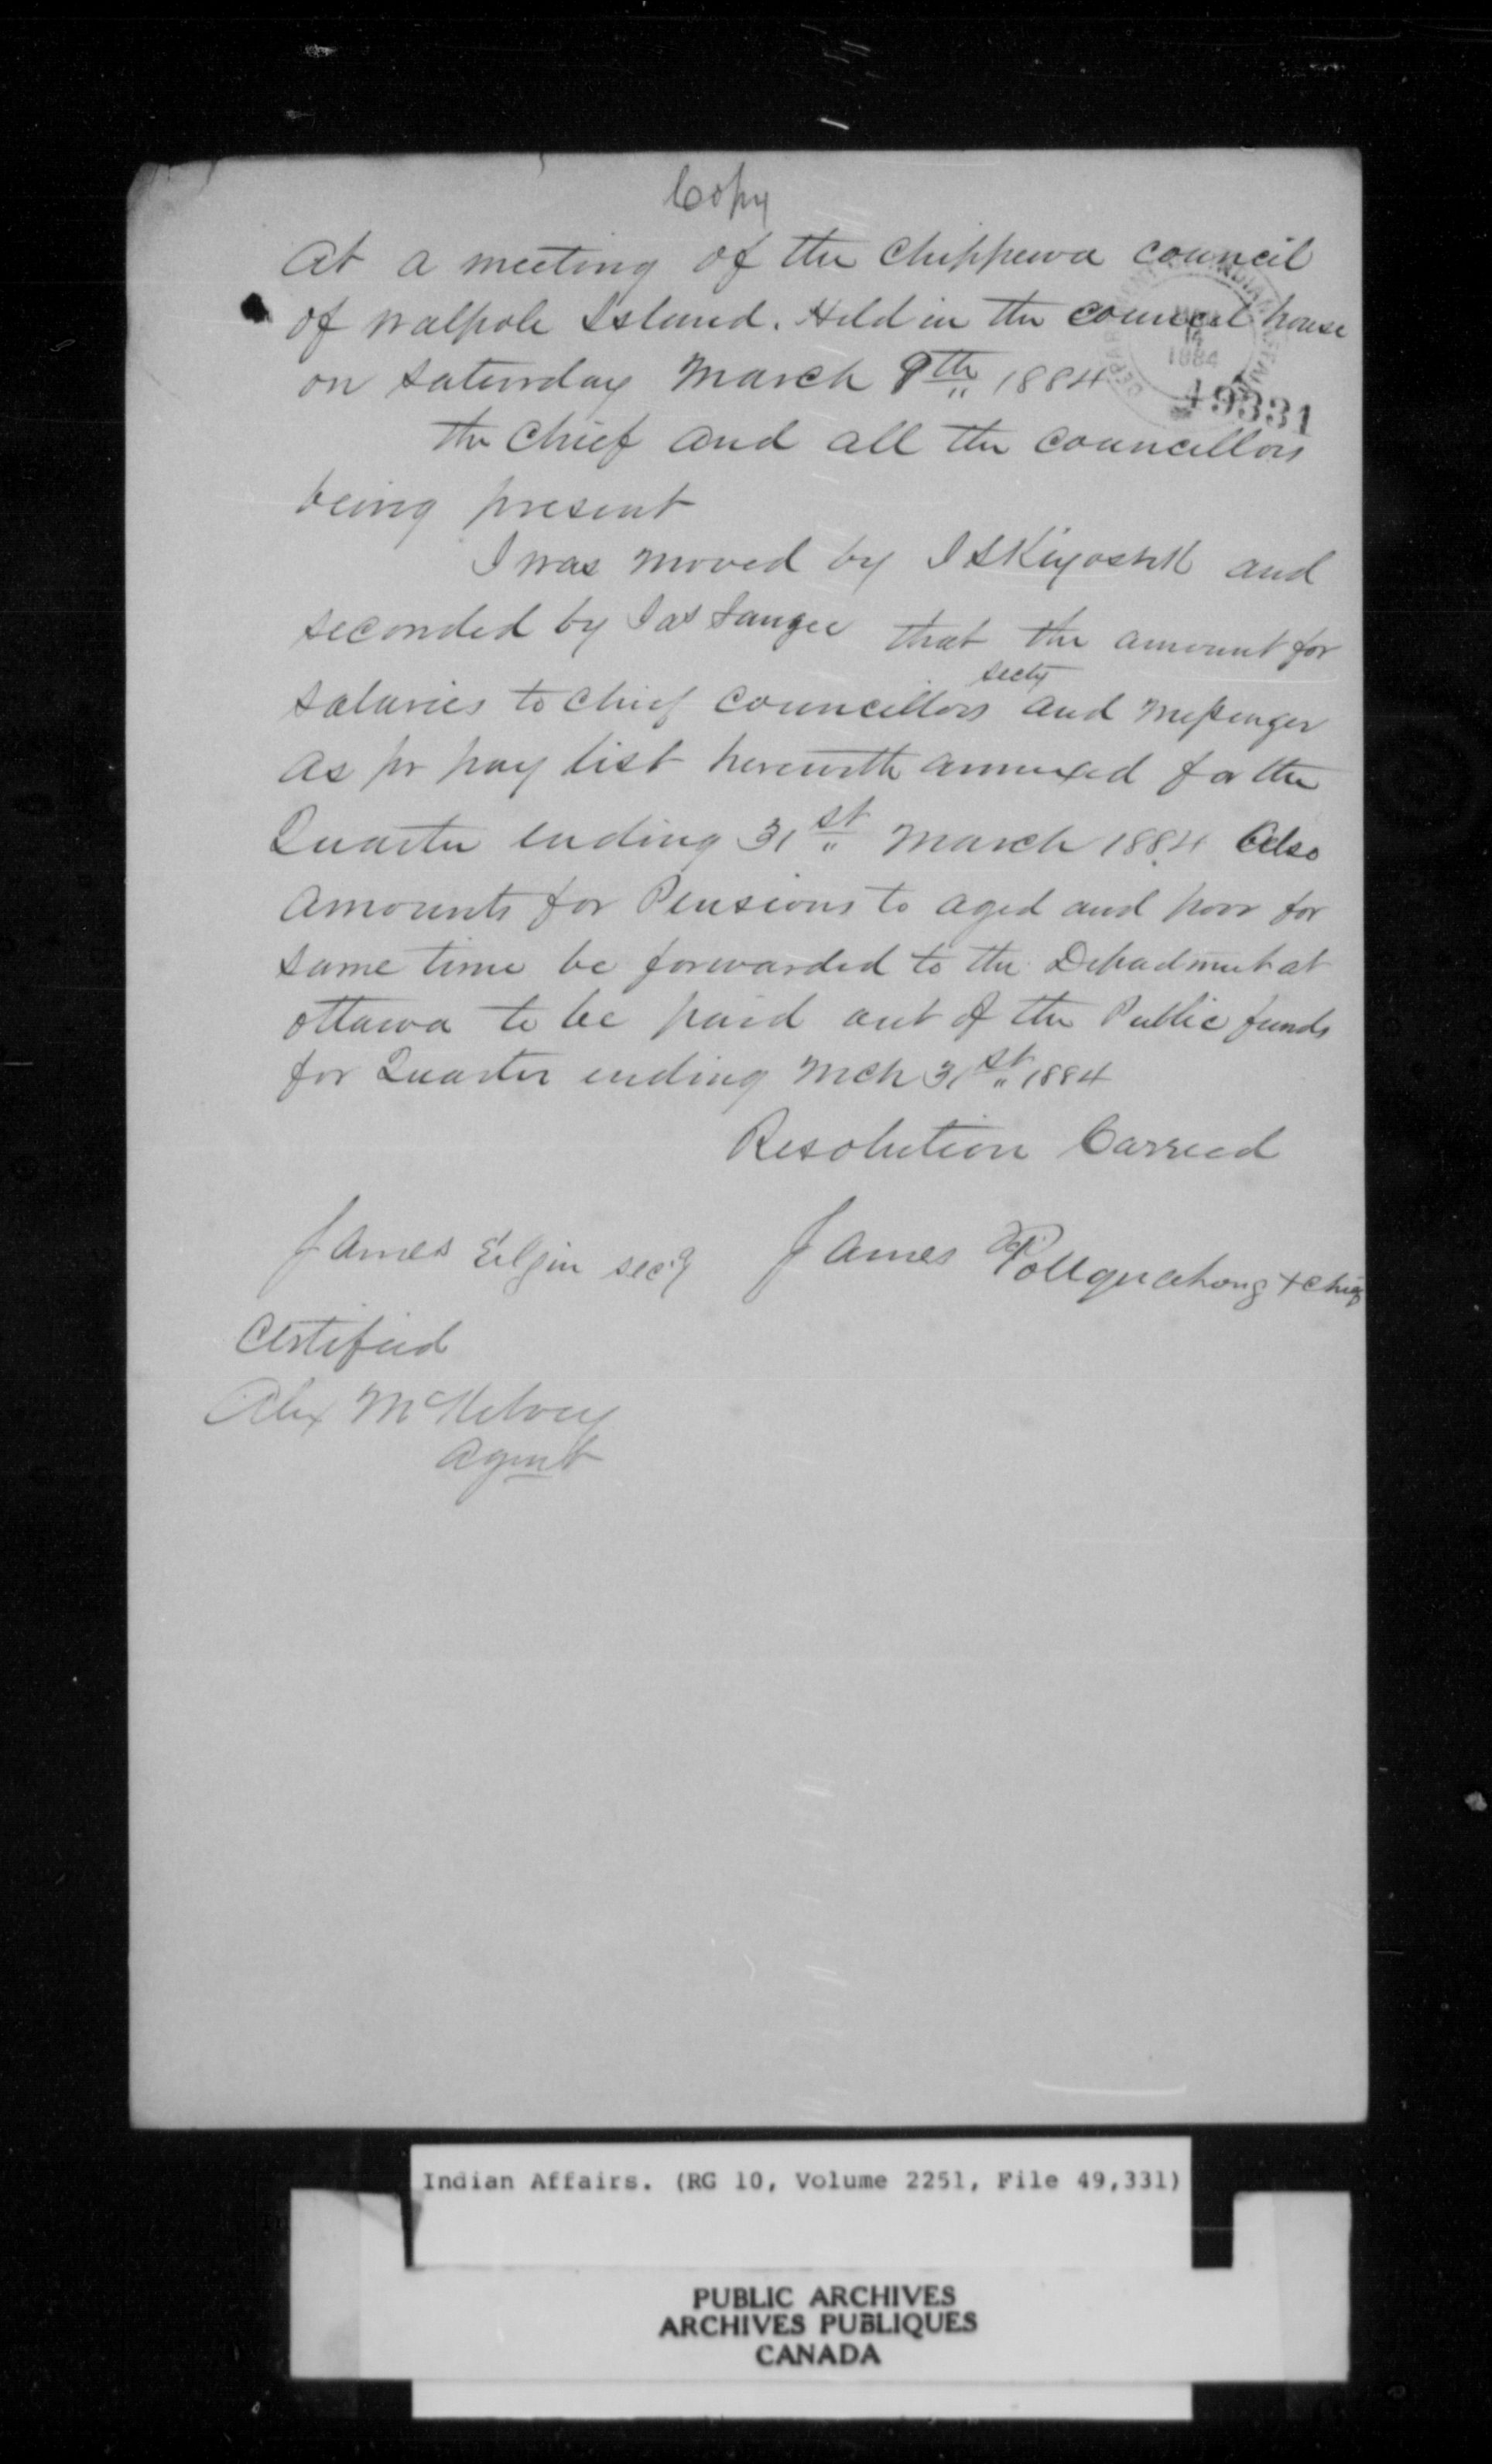 Copy
At a meeting of the Chippewa Council
of Walpole Island. Held in the council house
on Saturday March 8th 1884
DEPARTMENT INDIAN
1884
49331
the Chief and all the Councillors
being present
I was moved by and
seconded by Jas Sangee that the amount for
secty
salaries to Chief Councillors and Messenger
as pr pay list herewith annexed for the
Quarter ending 31st March 1884 Also
amounts for Pensions to aged and poor for
same time be forwarded to the Department at
Ottawa to be paid out of the Public funds
for Quarter ending Mch 31st 1884
Resolution Carried
James Elgin secy
James + Chief
Certified
Alex McKelvey
Agent
Indian Affairs. (RG 10, Volume 2251, File 49,331)
PUBLIC ARCHIVES
ARCHIVES PUBLIQUES
CANADA